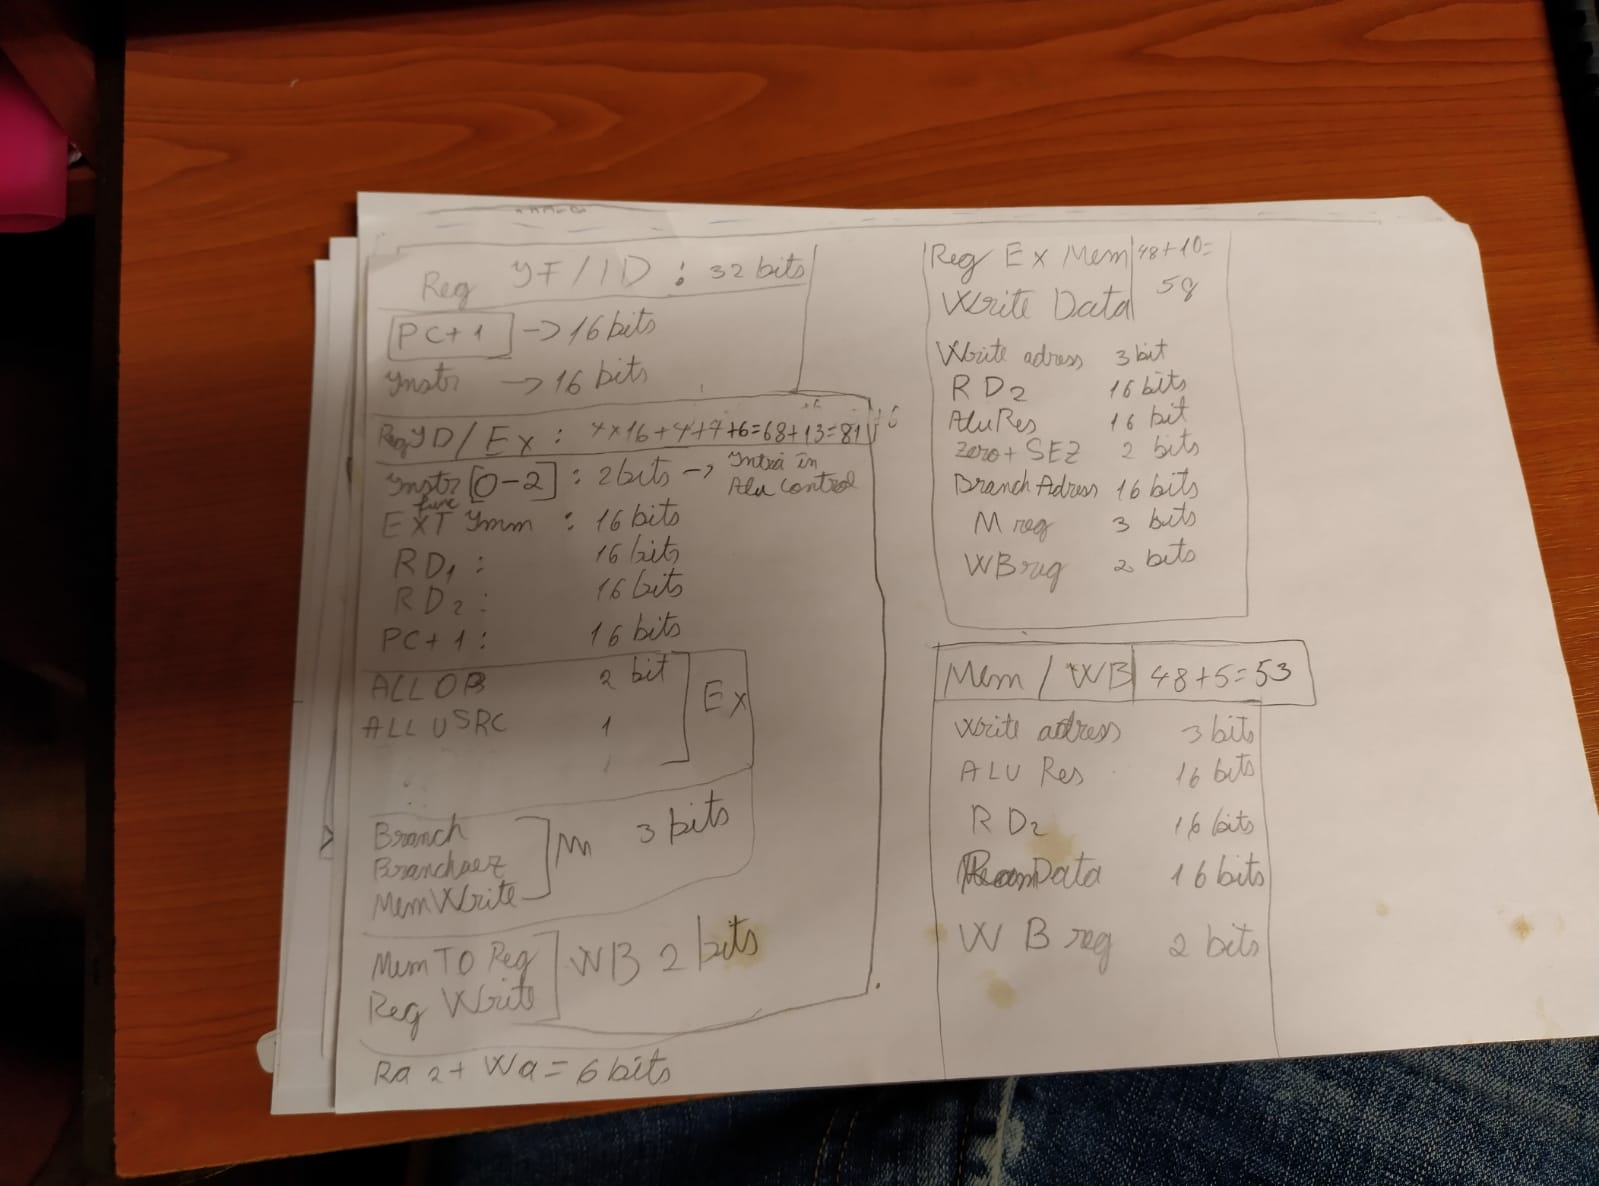 Reg IF/ID : 32 bits
PC+1 -> 16 bits
Instr -> 16 bits
Reg ID/Ex : 4x16+4+7+6=68+13=81
Instr [0-2] : 2bits -> Intră în
func Alu control
EXT Imm : 16 bits
RD1 : 16 bits
RD2 : 16 bits
PC+1 : 16 bits
ALLOB 2 bit
Ex
ALLUSRC 1
Branch
Mem Write
M 3 bits
Mem TO Reg
Reg Write
WB 2 bits
Ra 2+ Wa = 6 bits
Reg Ex Mem 48+10=
58
Write Data
Write adress 3 bit
RD2 16 bits
AluRes 16 bit
Zero + SEZ 2 bits
Branch Adress 16 bits
M reg 3 bits
WB reg 2 bits
Mem / WB 48+5=53
Write adress 3 bits
ALU Res 16 bits
RD2 16 bits
Data 16 bits
WB reg 2 bits